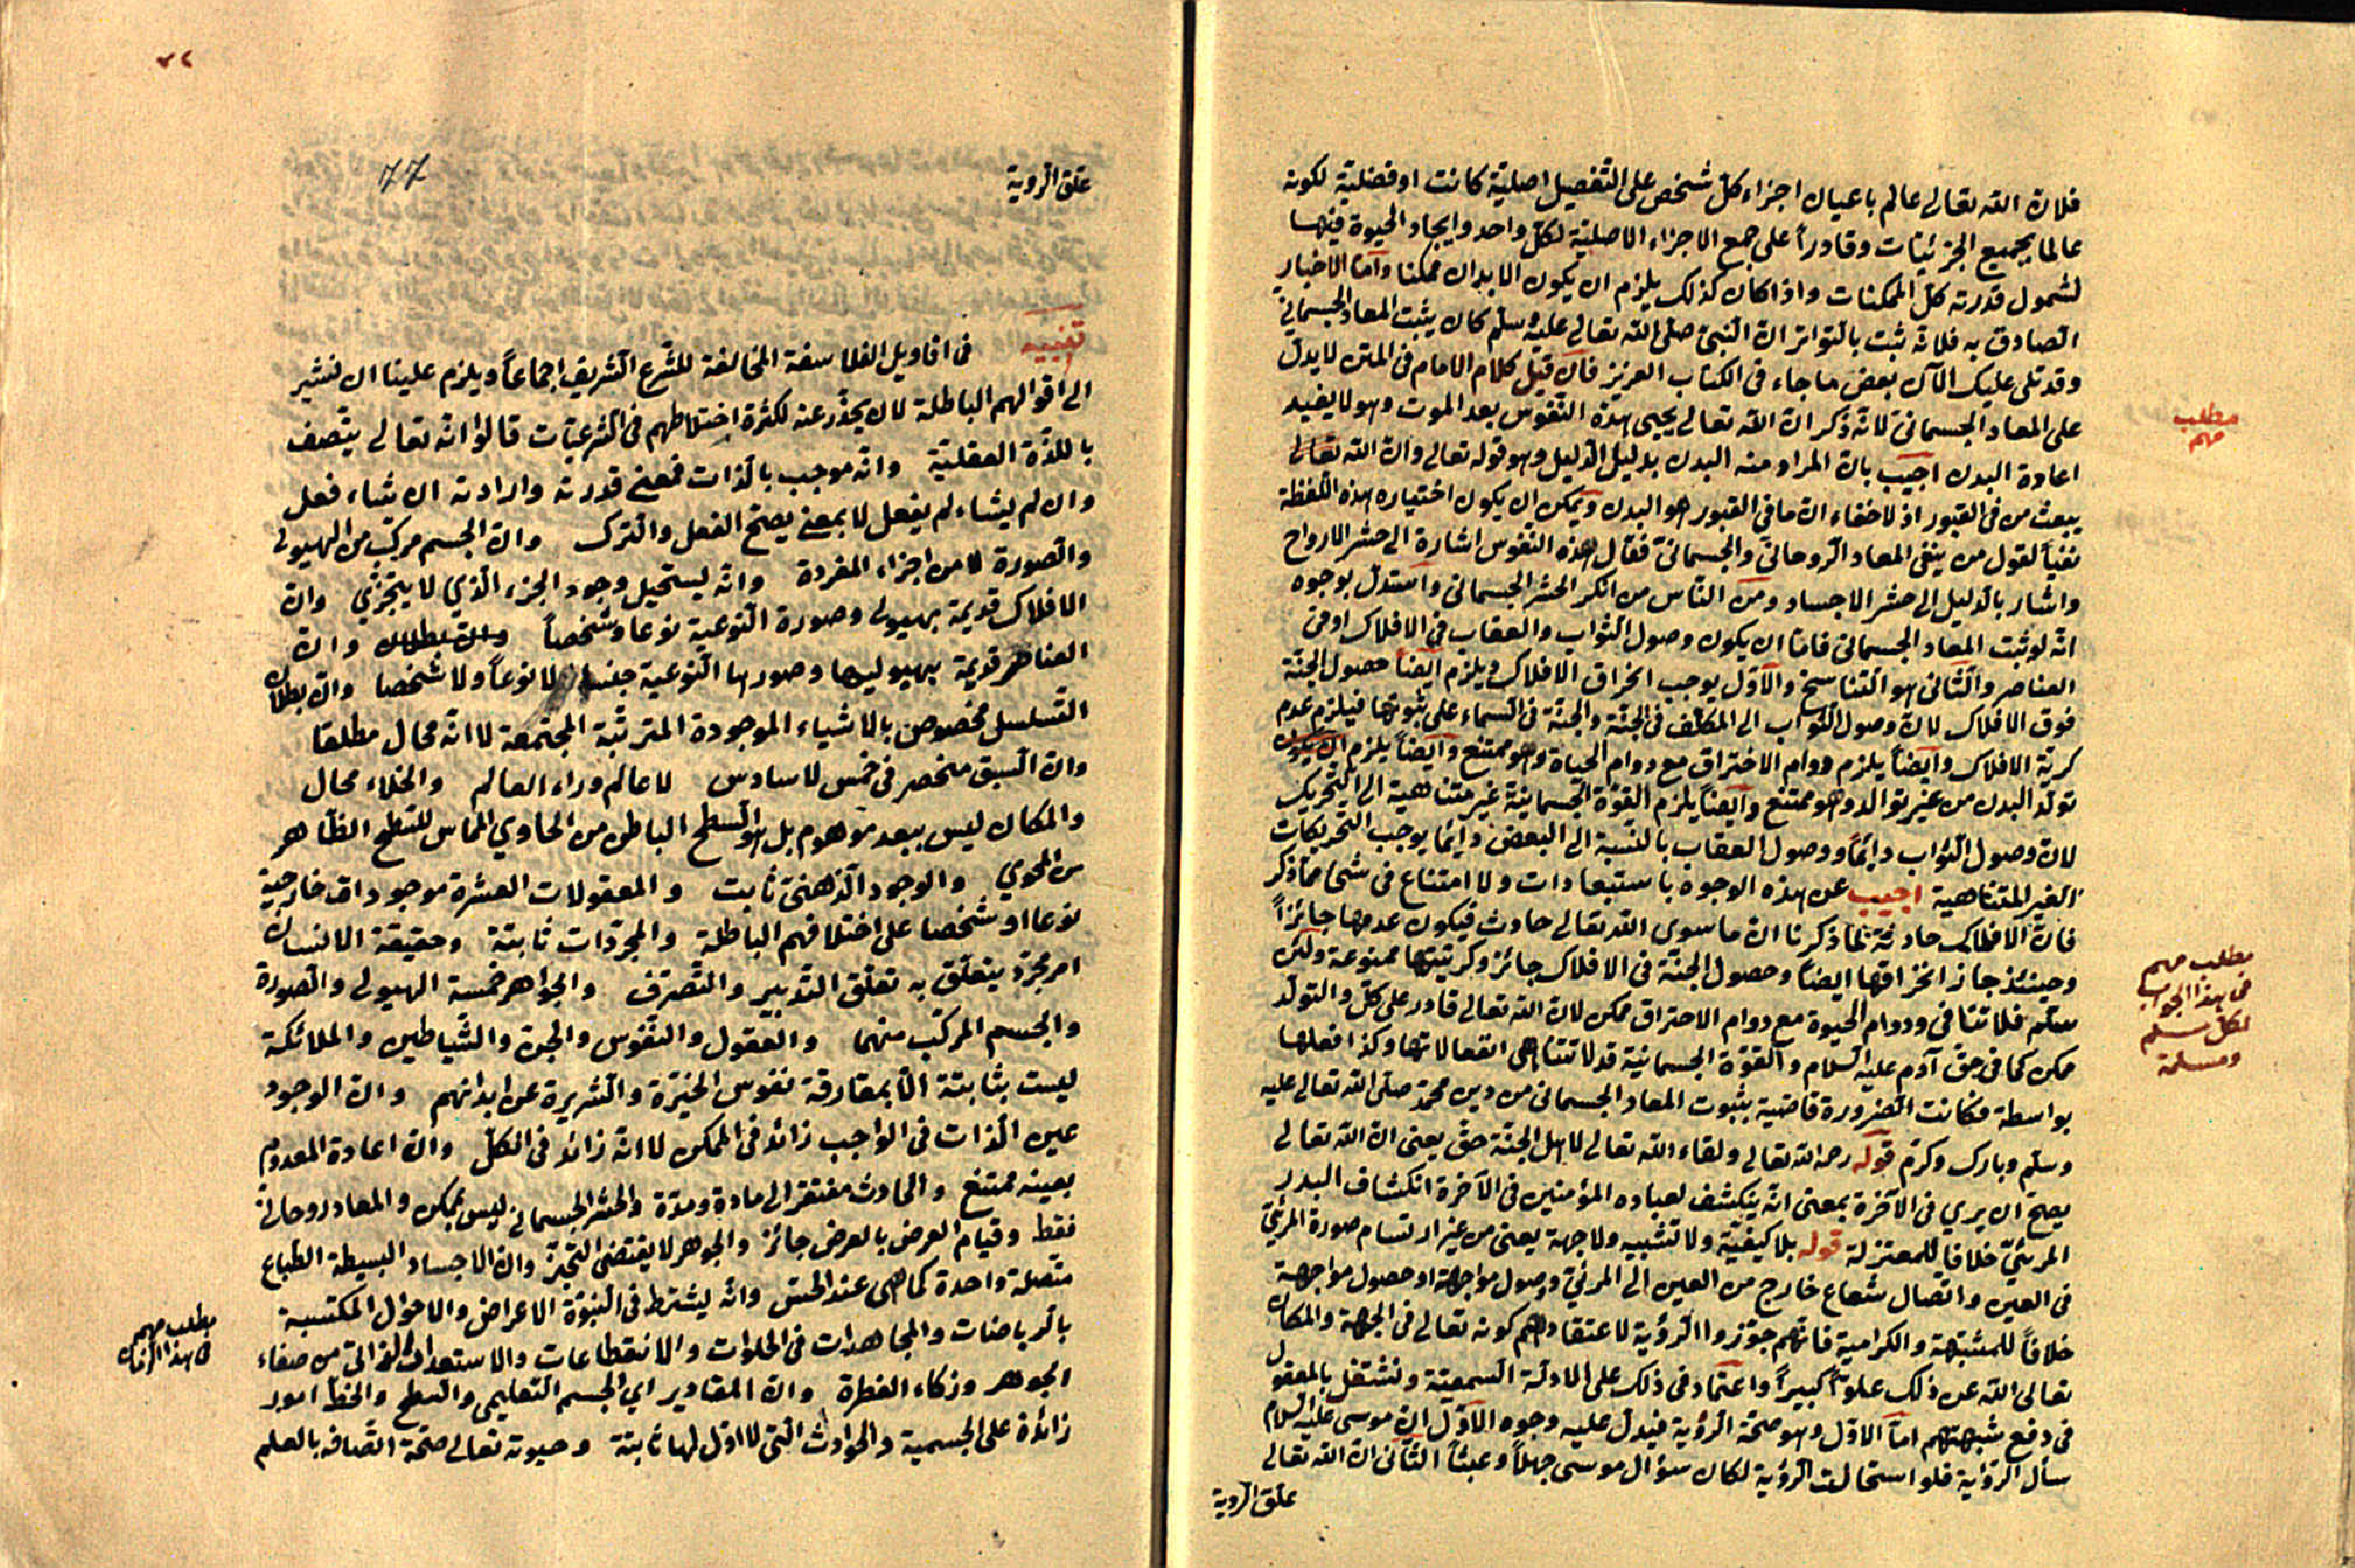 فلان الله تعالى عالم باعيان اجزاء كل شخص على التفصيل اصلية كانت او فضلية لكونه
عالما بجميع الجزئيات وقادراً على جمع الاجزاء الاصلية لكل واحد وايجاد الحيوة فيها
لشمول قدرته كل الممكنات واذا كان كذلك يلزم ان يكون الابدان ممكنا وأما الاخبار
الصادق به فلانه ثبت بالتواتر ان النبى صلى الله تعالى عليه وسلم كان يثبت المعاد الجسمانى
وقد تلى عليك الآن بعض ما جاء فى الكتاب العزيز فان قيل كلام الامام فى المتن لا يدل
على المعاد الجسمانى لانه ذكر ان الله تعالى يحيى هذه النفوس بعد الموت وهو لا يفيد
اعادة البدن اجيب بان المراد منه البدن بدليل الدليل وهو قوله تعالى وان الله تعالى
يبعث من فى القبور اذ لا خفاء ان ما فى القبور هو البدن ويمكن ان يكون اختياره هذه اللفظة
نفياً لقول من ينفى المعاد الروحانى والجسمانى فقال هذه النفوس اشارة الى حشر الارواح
واشار بالدليل الى حشر الاجساد ومن الناس من انكر الحشر الجسمانى واستدل بوجوه
انه لو ثبت المعاد الجسمانى فاما ان يكون وصول الثواب والعقاب فى الافلاك او فى
العناصر والثانى هو التناسخ والاول يوجب انخراق الافلاك ويلزم ايضاً حصول الجنة
فوق الافلاك لان وصول الثواب الى المكلف فى الجنة والجنة فى السماء على ثبوتها فيلزم عدم
كرية الافلاك وايضاً يلزم دوام الاحتراق مع دوام الحياة وهو ممتنع وايضاً يلزم ان يكون
تولد البدن من غير توالد وهو ممتنع وايضاً يلزم القوة الجسمانية غير متناهية الى التحريك
لان وصول الثواب دائماً ووصول العقاب بالنسبة الى البعض دائماً يوجب التحريكات
الغير المتناهية اجيب عن هذه الوجوه باستبعادات ولا امتناع فى شئ مما ذكر
فان الافلاك حادثة لما ذكرنا ان ما سوى الله تعالى حادث فيكون عدمها جائزاً
وحينئذ جاز انخراقها ايضاً وحصول الجنة فى الافلاك جائز وكريتها ممنوعة ولئن
سلم فلا تنافى ودوام الحيوة مع دوام الاحتراق ممكن لان الله تعالى قادر على كل والتولد
ممكن كما فى حق آدم عليه السلام والقوة الجسمانية قد لا تتناهى انفعالاتها وكذا فعلها
بواسطة فكانت الضرورة قاضية بثبوت المعاد الجسمانى من دين محمد صلى الله تعالى عليه
وسلم وبارك وكرم قوله رحمه الله تعالى ولقاء الله تعالى لاهل الجنة حق يعنى ان الله تعالى
يصح ان يرى فى الآخرة بمعنى انه ينكشف لعباده المؤمنين فى الآخرة انكشاف البدر
المرئى خلافا للمعتزلة قوله بلا كيفية ولا تشبيه ولا جهة يعنى من غير ارتسام صورة المرئى
فى العين واتصال شعاع خارج من العين الى المرئى وصول مواجهة او حصول مواجهة
خلافاً للمشبهة والكرامية فانهم جوزوا الرؤية لاعتقادهم كونه تعالى فى الجهة والمكان
تعالى الله عن ذلك علوا كبيراً واعتماد فى ذلك على الادلة السمعية ونشتغل بالمعقول
فى دفع شبهتهم اما الاول وهو صحة الرؤية فيدل عليه وجوه الاول ان موسى عليه السلام
سأل الرؤية فلو استحالت الرؤية لكان سؤال موسى جهلاً وعبثاً الثانى ان الله تعالى
علق الروية
مطلب
مهم
مطلب مهم
فى هذا الجواب
لكل مسلم
ومسلمة
٧٧
علق الروية
تنبيه فى اقاويل الفلاسفة المخالفة للشرع الشريف اجماعاً ويلزم علينا ان نشير
الى اقوالهم الباطلة لان يحذر عنه لكثرة اختلاطهم فى الشرعيات قالوا انه تعالى يتصف
باللذة العقلية وانه موجب بالذات فمعنى قدرته وارادته ان شاء فعل
وان لم يشاء لم يفعل لا بمعنى يصح الفعل والترك وان الجسم مركب من الهيولى
والصورة لا من اجزاء المفردة وانه ليستحيل وجود الجزء الذي لا يتجزى وان
الافلاك قديمة بهيولى وصورة النوعية نوعا وشخصاً وان بطلان وان
العناصر قديمة بهيوليها وصورها النوعية جنسا لا نوعاً ولا شخصا وان بطلان
التسلسل مخصوص بالاشياء الموجودة المترتبة المجتمعة لا انه محال مطلقا
وان السبق منحصر فى خمس لا سادس لا عالم وراء العالم والخلاء محال
والمكان ليس ببعد موهوم بل هو السطح الباطن من الحاوي المماس للسطح الظاهر
من المحوي والوجود الذهنى ثابت والمعقولات العشرة موجودات خارجية
نوعا او شخصا على اختلافهم الباطلة والمجردات ثابتة وحقيقة الانسان
امر مجرد يتعلق به تعلق التدبير والتصرف والجواهر خمسة الهيولى والصورة
والجسم المركب منهما والعقول والنفوس والجن والشياطين والملائكة
ليست بثابتة الا بمفارقة نفوس الخيرة والشريرة عن ابدانهم وان الوجود
عين الذات فى الواجب زائد فى الممكن لا انه زائد فى الكل وان اعادة المعدوم
بعينه ممتنع والحادث مفتقر الى مادة ومدة والحشر الجسمانى ليس بممكن والمعاد روحانى
فقط وقيام العرض بالعرض جائز والجوهر لا يقتضى التحيز وان الاجساد البسيطة الطباع
متصلة واحدة كما هى عند الحس وانه ليشترط فى النبوة الاعراض والاحوال المكتسبة
بالرياضات والمجاهدات فى الخلوات والانقطاعات والاستعداد الذاتى من صفاء
الجوهر وزكاء الفطرة وان المقادير اي الجسم التعليمى والسطح والخط امور
زائدة على الجسمية والحوادث التى لا اول لها ثابتة وحيوته تعالى صحة اتصافه بالعلم
مطلب مهم